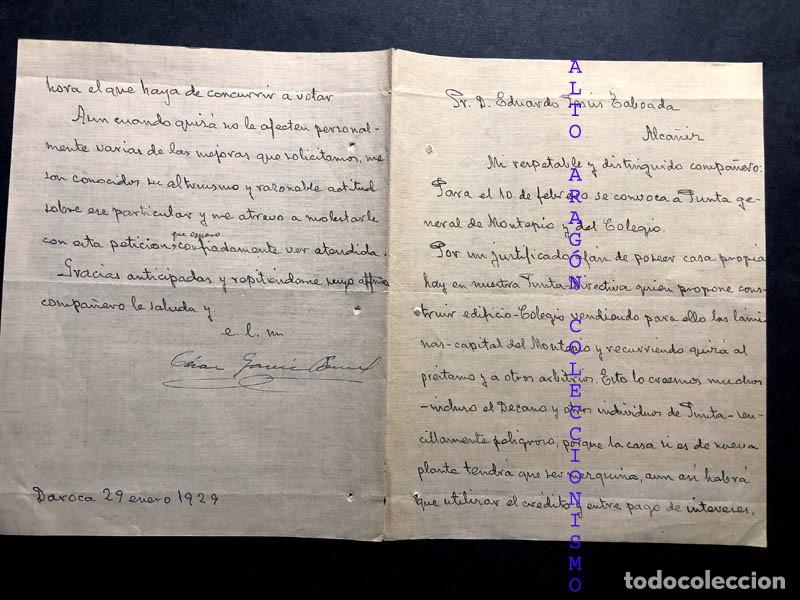 hora el que haya de concurrir a votar
Aun cuando quizá no le afecten personal-
mente varias de las mejoras que solicitamos, me
son conocidos su altruismo y razonable actitud
sobre ese particular y me atrevo a molestarle
con esta peticion, que espero confiadamente ver atendida.
Gracias anticipadas y repitiéndome suyo affmo
compañero le saluda y
e. l. m
César García
Daroca 29 enero 1929
Sr. D. Eduardo Jesús Taboada
Alcañiz
Mi respetable y distinguido compañero:
Para el 10 de febrero se convoca a Junta ge-
neral de Montepio y del Colegio.
Por un justificado afán de poseer casa propia
hay en nuestra Junta-Directiva quien propone cons-
truir edificio-Colegio vendiendo para ello las lámi
nas-capital del Montepio y recurriendo quizá al
préstamo y a otros arbitrios. Esto lo creemos muchos
-incluso el Decano y otros individuos de Junta- sen-
cillamente peligroso, porque la casa si es de nueva
planta tendrá que ser mezquina, aun así habrá
que utilizar el crédito y entre pago de intereses,
ALTO ARAGÓN COLECCIONISMO
todocoleccion